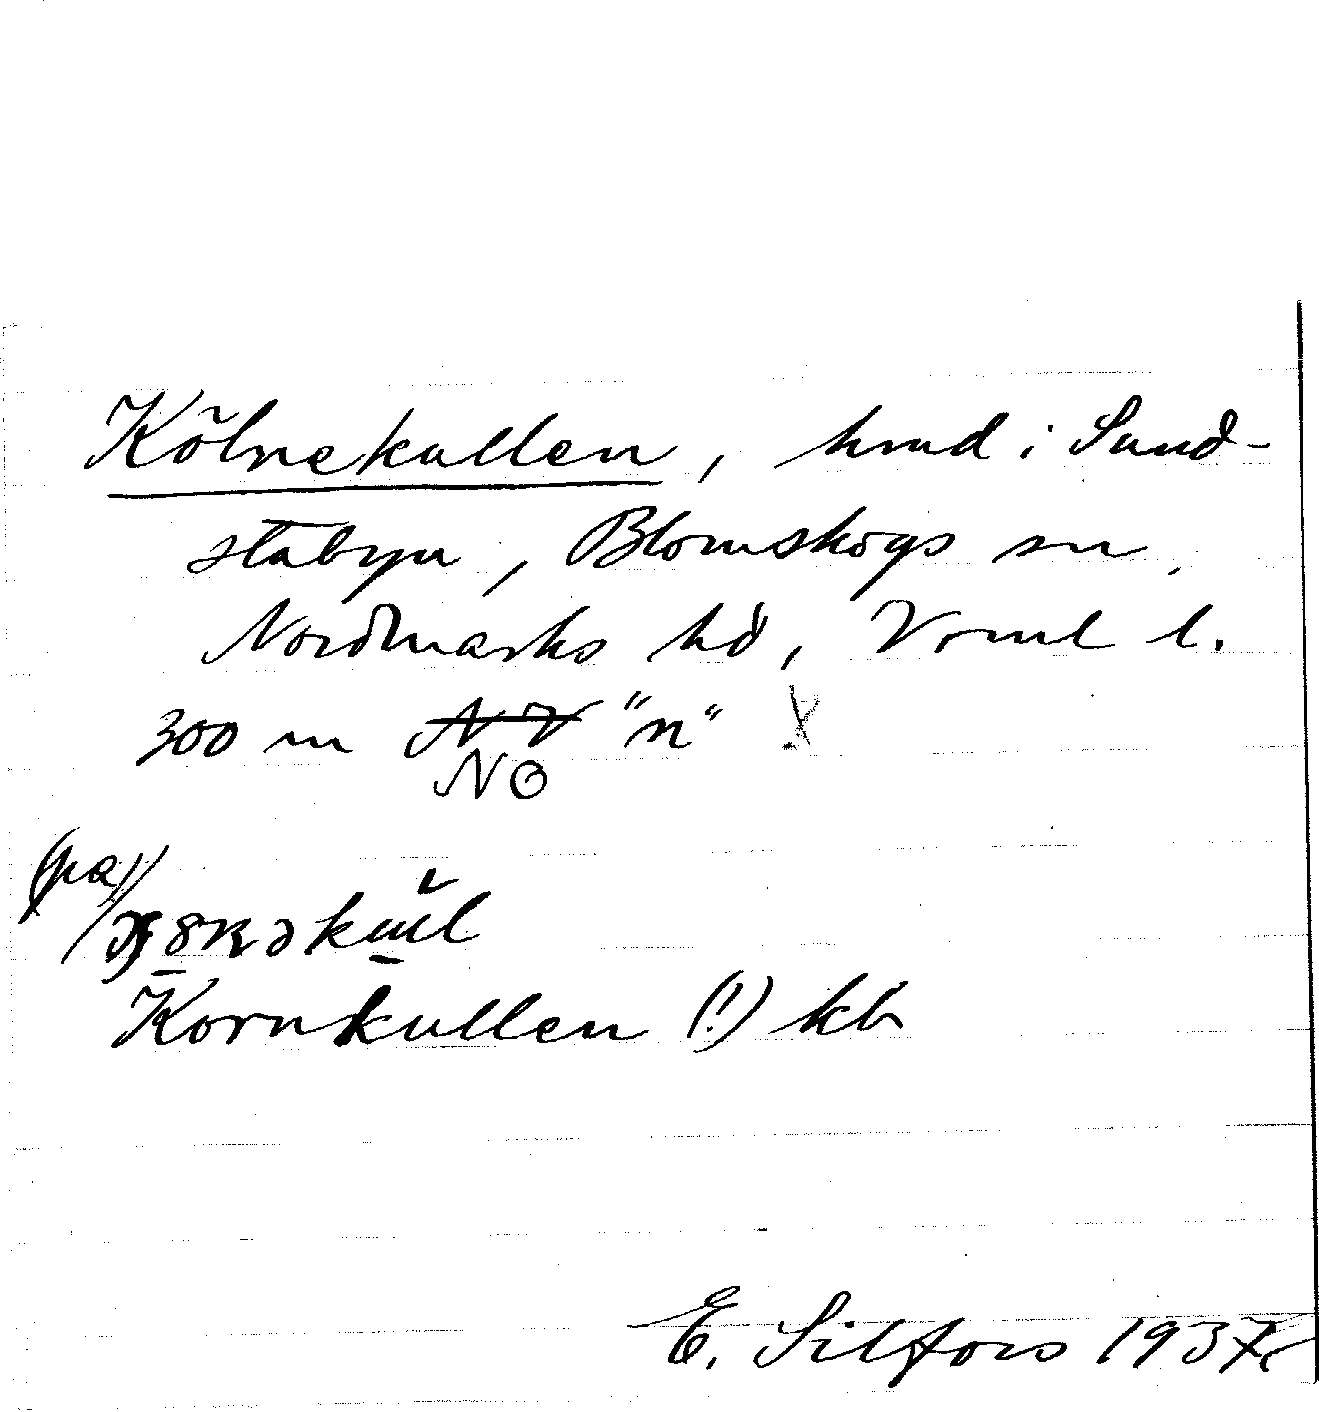 Kölnekullen, hmd i Sund-
stabyn, Blomskogs sn,
Nordmarks hd, Vrml l.
300 m NV "n"
NO
(på)
Kornkullen (!) kb
E. Silfors 1937